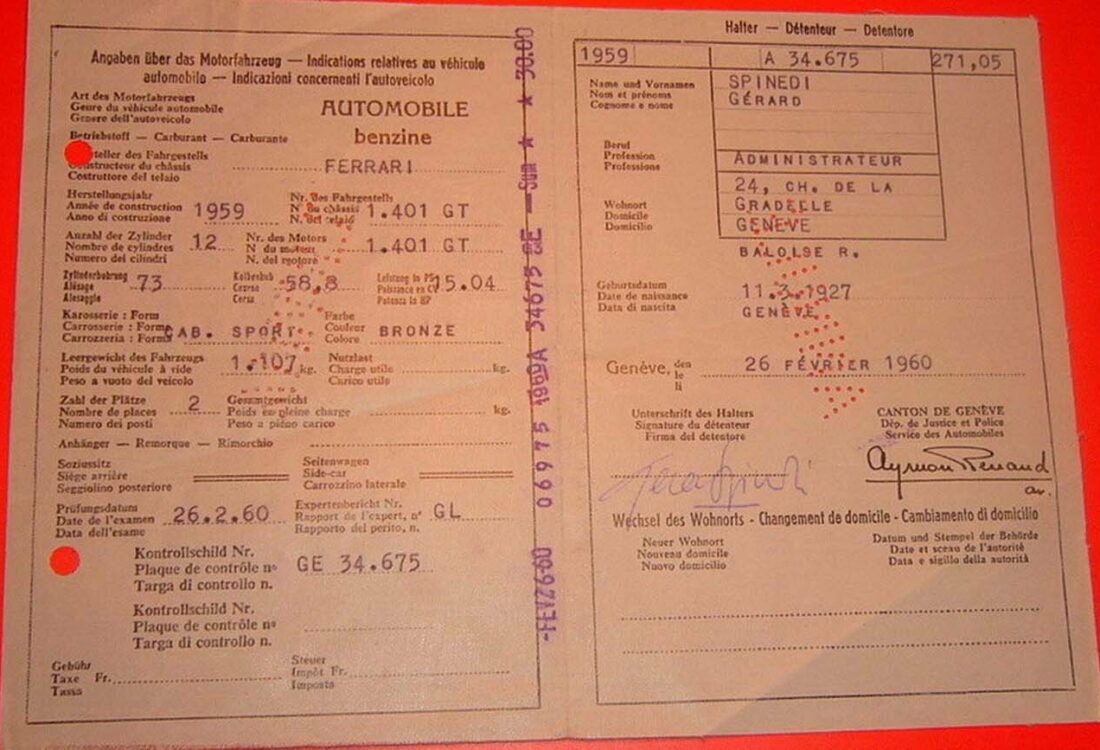 Angaben über das Motorfahrzeug — Indications relatives au véhicule
automobile — Indicazioni concernenti l'autoveicolo
Art des Motorfahrzeugs
Genre du véhicule automobile
Genere dell'autoveicolo
AUTOMOBILE
Betriebstoff — Carburant — Carburante
benzine
steller des Fahrgestells
onstructeur du châssis
Costruttore del telaio
FERRARI
Herstellungsjahr
Année de construction
Anno di costruzione
1959
Nr. des Fahrgestells
N° du châssis
N. del telaio
1.401 GT
Anzahl der Zylinder
Nombre de cylindres
Numero dei cilindri
12
Nr. des Motors
N du moteur
N. del motore
1.401 GT
Zylinderbohrung
Alésage
Alesaggio
73
Kolbenhub
Course
Corsa
58,8
Leistung in PS
Puissance en CV
Potenza in HP
15.04
Karosserie : Form
Carrosserie : Forme
Carrozzeria : Forma
CAB. SPORT
Farbe
Couleur
Colore
BRONZE
Leergewicht des Fahrzeugs
Poids du véhicule à vide
Peso a vuoto del veicolo
1.107 kg.
Nutzlast
Charge utile
Carico utile
kg.
Zahl der Plätze
Nombre de places
Numero dei posti
2
Gesamtgewicht
Poids en pleine charge
Peso a pieno carico
kg.
Anhänger — Remorque — Rimorchio
Soziussitz
Siège arrière
Seggiolino posteriore
Seitenwagen
Side-car
Carrozzino laterale
Prüfungsdatum
Date de l'examen
Data dell'esame
26.2.60
Expertenbericht Nr.
Rapport de l'expert, n°
Rapporto del perito, n.
GL
Kontrollschild Nr.
Plaque de contrôle n°
Targa di controllo n.
GE 34.675
Kontrollschild Nr.
Plaque de contrôle n°
Targa di controllo n.
Gebühr
Taxe Fr.
Tassa
Steuer
Impôt Fr.
Imposta
30.00
Halter — Détenteur — Detentore
1959
A 34.675
271,05
Name und Vornamen
Nom et prénoms
Cognome e nome
SPINEDI
GÉRARD
Beruf
Profession
Professione
ADMINISTRATEUR
Wohnort
Domicile
Domicilio
24, CH. DE LA
GRADELLE
GENÈVE
BALOISE R.
Geburtsdatum
Date de naissance
Data di nascita
11.3.1927
GENÈVE
Genève,
den
le
li
26 FÉVRIER 1960
Unterschrift des Halters
Signature du détenteur
Firma del detentore
CANTON DE GENÈVE
Dép. de Justice et Police
Service des Automobiles
Aymon Renaud
Wechsel des Wohnorts - Changement de domicile - Cambiamento di domicilio
Neuer Wohnort
Nouveau domicile
Nuovo domicilio
Datum und Stempel der Behörde
Date et sceau de l'autorité
Data e sigillo della autorità